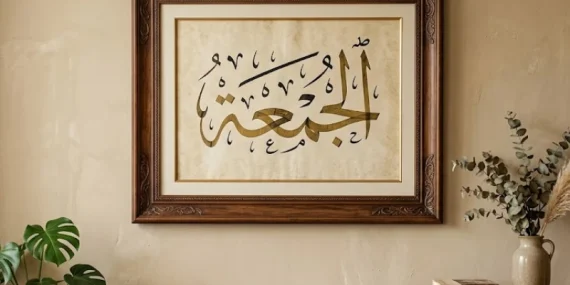 الجمعة